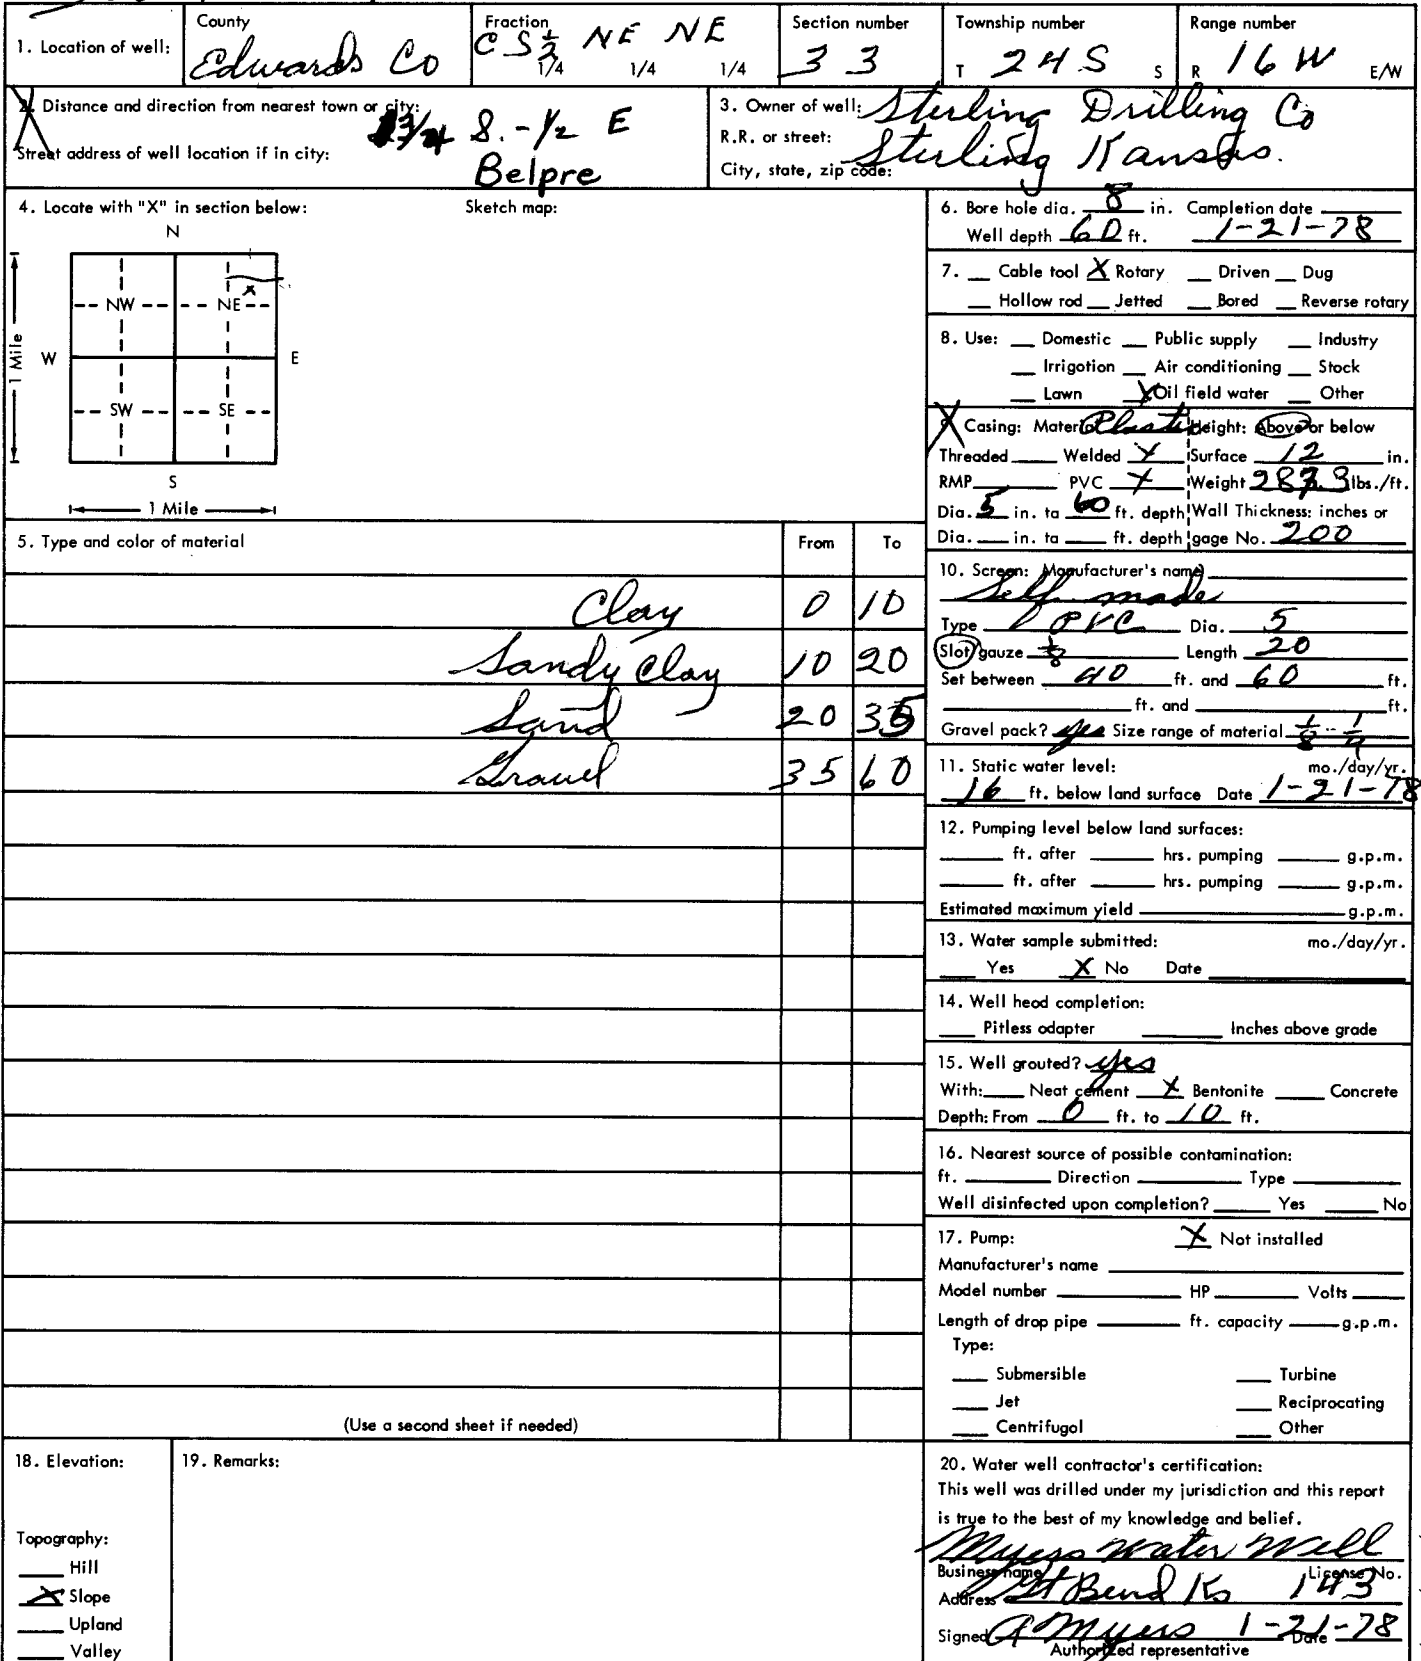 1. Location of well: County Edwards Co Fraction C S½ NE NE 1/4 1/4 1/4 Section number 33 Township number T 24 S S Range number R 16 W E/W
2. Distance and direction from nearest town or city: 3/4 S. - 1/2 E
Street address of well location if in city: Belpre
3. Owner of well: Sterling Drilling Co
R.R. or street:
City, state, zip code: Sterling Kansas.
4. Locate with "X" in section below: Sketch map:
N
NW NE
X
W E
1 Mile
SW SE
S
1 Mile
5. Type and color of material From To
Clay 0 10
Sandy Clay 10 20
Sand 20 35
Gravel 35 60
(Use a second sheet if needed)
6. Bore hole dia. 8 in. Completion date
Well depth 60 ft. 1-21-78
7. Cable tool X Rotary Driven Dug
Hollow rod Jetted Bored Reverse rotary
8. Use: Domestic Public supply Industry
Irrigation Air conditioning Stock
Lawn X Oil field water Other
9. Casing: Material Plastic Height: Above or below
Threaded Welded X Surface 12 in.
RMP PVC X Weight lbs./ft.
Dia. 5 in. to 60 ft. depth Wall Thickness: inches or
Dia. in. to ft. depth gage No. 200
10. Screen: Manufacturer's name
Self made
Type PVC Dia. 5
Slot gauze 1/8 Length 20
Set between 40 ft. and 60 ft.
ft. and ft.
Gravel pack? yes Size range of material 1/8 - 1/4
11. Static water level: mo./day/yr.
16 ft. below land surface Date 1-21-78
12. Pumping level below land surfaces:
ft. after hrs. pumping g.p.m.
ft. after hrs. pumping g.p.m.
Estimated maximum yield g.p.m.
13. Water sample submitted: mo./day/yr.
Yes X No Date
14. Well head completion:
Pitless adapter Inches above grade
15. Well grouted? yes
With: Neat cement X Bentonite Concrete
Depth: From 0 ft. to 10 ft.
16. Nearest source of possible contamination:
ft. Direction Type
Well disinfected upon completion? Yes No
17. Pump: X Not installed
Manufacturer's name
Model number HP Volts
Length of drop pipe ft. capacity g.p.m.
Type:
Submersible Turbine
Jet Reciprocating
Centrifugal Other
18. Elevation:
Topography:
Hill
X Slope
Upland
Valley
19. Remarks:
20. Water well contractor's certification:
This well was drilled under my jurisdiction and this report
is true to the best of my knowledge and belief.
Myers Water Well
Business name License No.
Address Gt Bend Ks 143
Signed A Myers 1-21-78 Date
Authorized representative